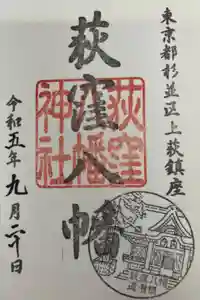 東京都杉並区上荻鎮座
荻窪八幡
荻窪八幡神社
令和五年九月二十日